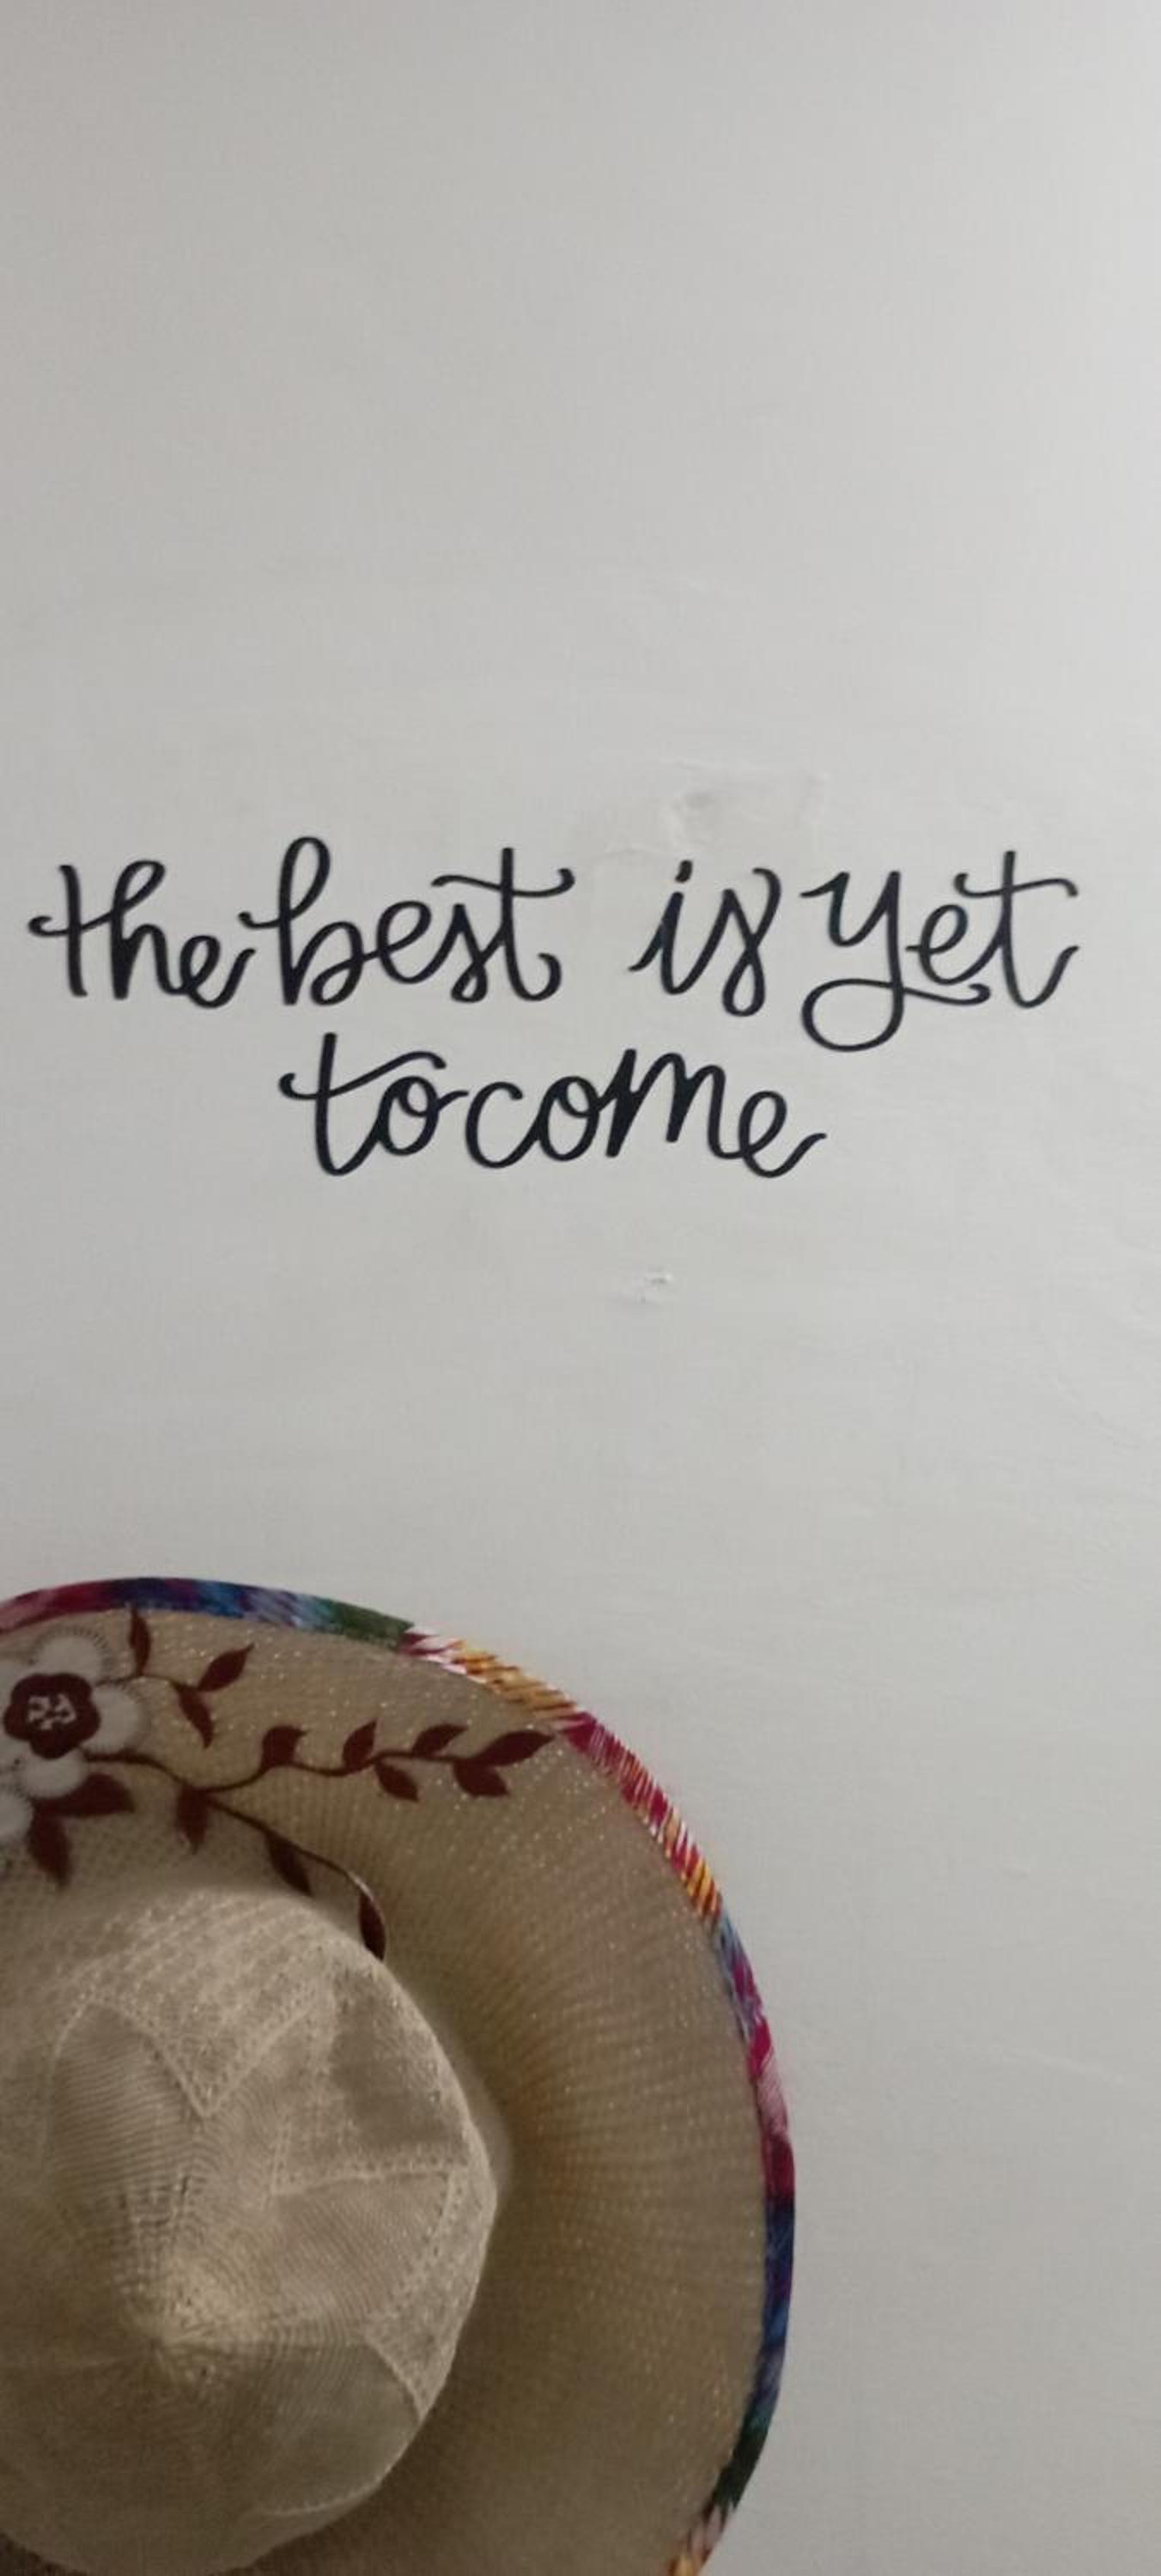 the best is yet
to come